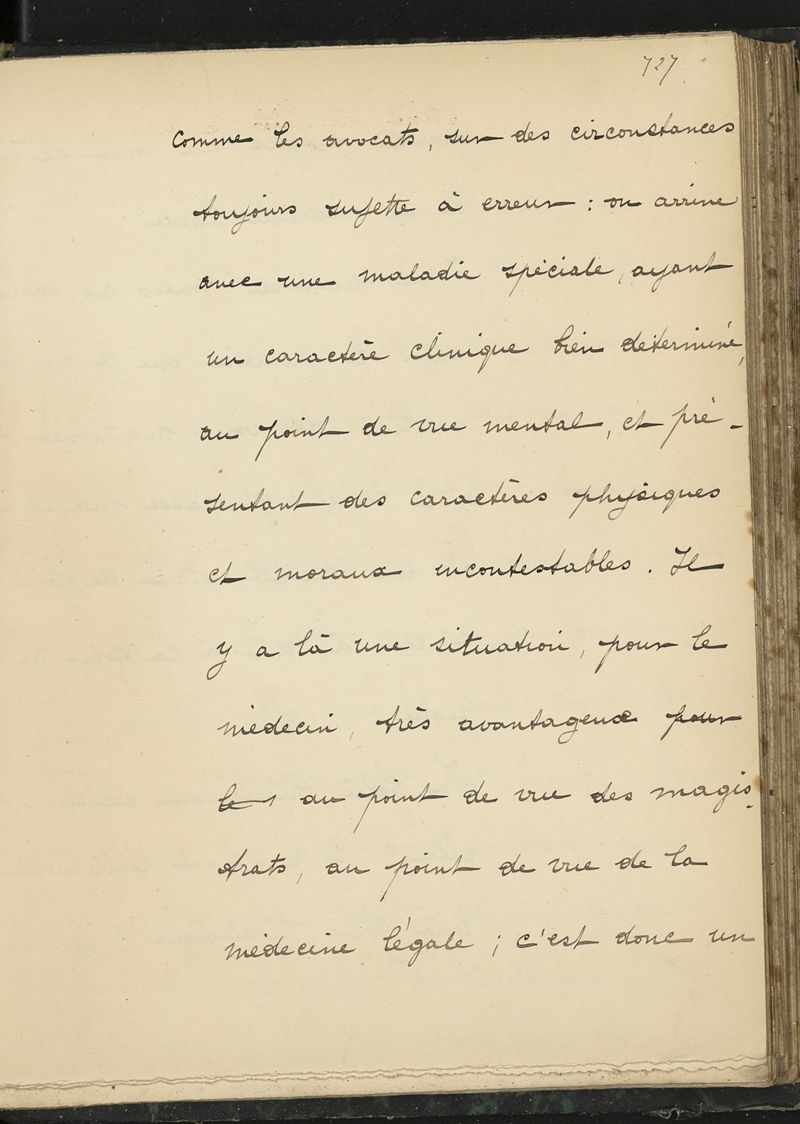 727
comme les avocats, sur des circonstances
toujours sujette à erreur : on arrive
avec une maladie spéciale, ayant
un caractère clinique bien déterminé,
au point de vue mental, et pré-
sentant des caractères physiques
et moraux incontestables. Il
y a là une situation, pour le
médecin, très avantageuse pour
le, au point de vue des magis-
trats, au point de vue de la
médecine légale ; c'est donc un